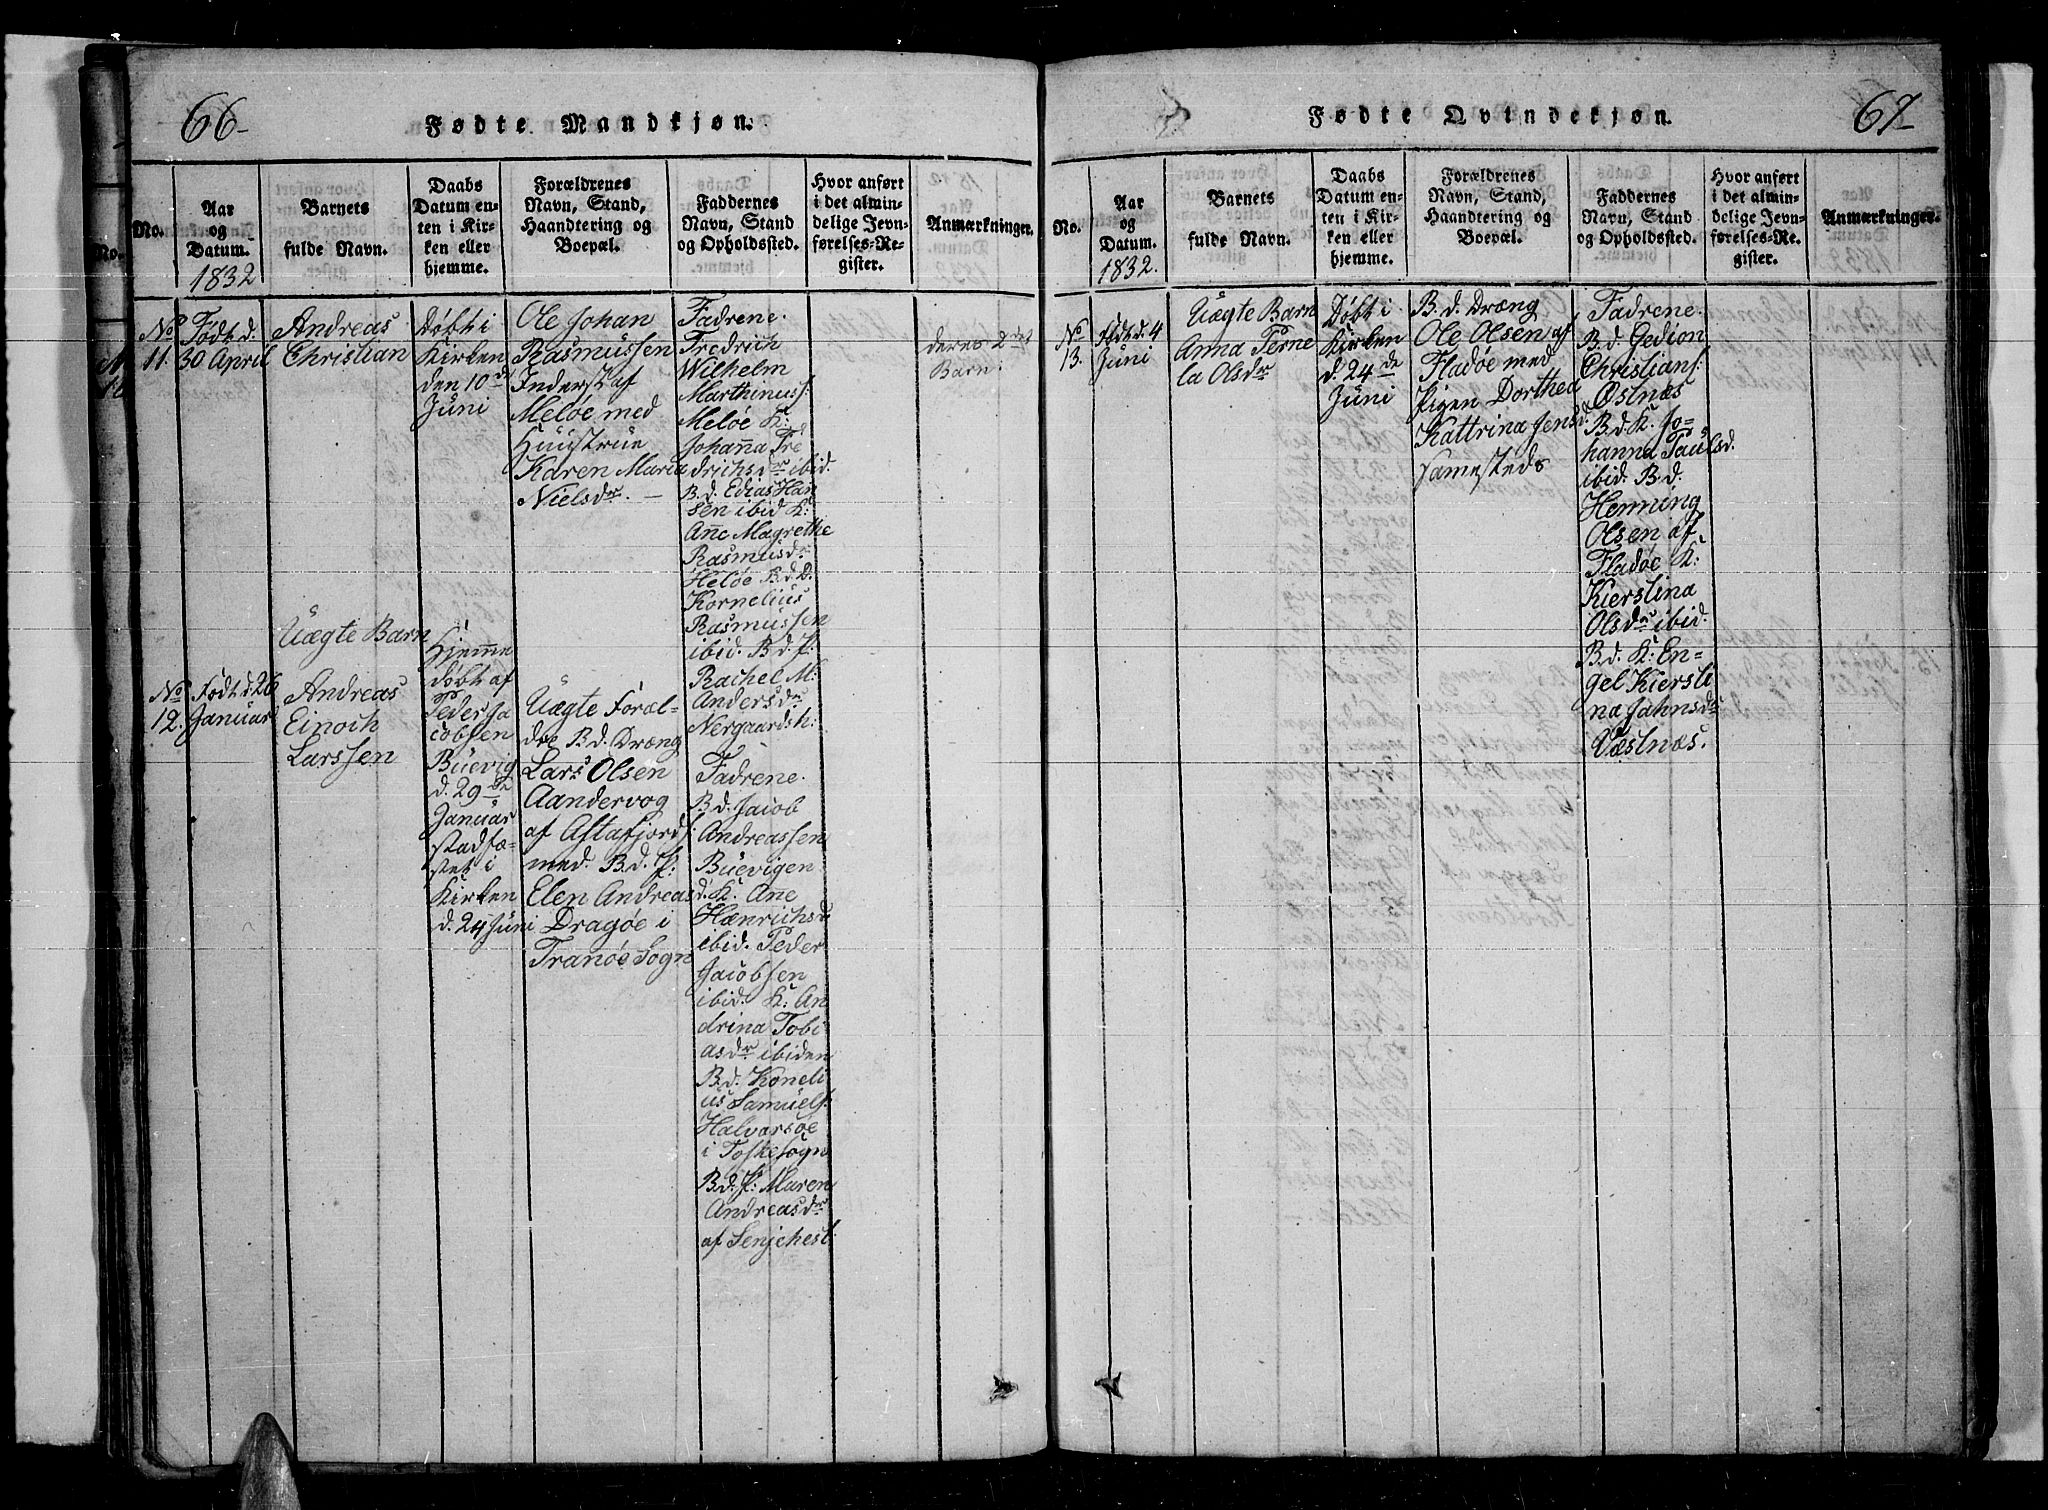 66-
Fødte Mandkjøn.
No.
Aar
og
Datum.
1832
Barnets
fulde Navn.
Daabs
Datum en-
ten i Kir-
ken eller
hjemme.
Forældrenes
Navn, Stand,
Haandtering og
Boepæl.
Faddernes
Navn, Stand
og Opholdssted.
Hvor anført
i det almin-
delige Jevn-
førelses-Re-
gister.
Anmærkninger.
No
11.
Født d.
30 April
Andreas
Christian
Døbt i
Kirken
den 10d
Juni
Ole Johan
Rasmussen
Inderst af
Meløe med
Huustrue
Karen Maria
Nielsdr. —
Fadrene.
Fredrich
Wilhelm
Marthinuss.
Meløe K:
Johanna Fre
drichsdr ibid.
B. d. Edias Han
sen ibid K:
Anne Magrethe
Rasmusdr
Heløe B. d. D.
Kornelius
Rasmussen
ibid. B. d. P:
Rachel M:
Andersdr
Nergaardsh:
deres 2det
Barn.
No
12.
Født d. 26
Januar
Uægte Barn
Andreas
Einoch
Larssen
Hjemme
døbt af
Peder Ja
cobsen
Buevig
d. 29de
Januar
stadfæ-
stet i
Kirken
d. 24 Juni
Uægte Foræl-
dre B. d. Dræng
Lars Olsen
Aandervog
af Astafjord
med. B. d. P:
Elen Andreasd.
Dragøe i
Tranøe Sogn
Fadrene.
B. d. Jacob
Andreassen
Buevigen
K: Anne
Hænrichsd.
ibid. Peder
Jacobsen
ibid. K: An
drina Tobi
asdr ibiden
B. d. Koneli
us Samuels.
Halvarsøe
i Toskesogn
B. d. P: Maren
Andreasdr
af Senjehest.
67-
Fødte Qvindekjøn.
No.
Aar
og
Datum.
1832.
Barnets
fulde Navn.
Daabs
Datum en-
ten i Kir-
ken eller
hjemme.
Forældrenes
Navn, Stand,
Haandtering og
Boepæl.
Faddernes
Navn, Stand
og Opholdssted.
Hvor anført
i det almin-
delige Jevn-
førelses-Re-
gister.
Anmærkninger.
No
13.
Født d. 4
Juni
Uægte Barn
Anna Perne
la Olsdr
Døbt i
Kirken
d. 24de
Juni
B. d. Dræng
Ole Olsen af
Fladøe med
Pigen Dorthea
Kattrina Jensd.
sammesteds
Fadrene.
B. d. Gedion
Christians.
Østnæs
B. d. K. Jo-
hanna Paulsd.
ibid. B. d.
Henning
Olsen af
Fladøe K:
Kierstina
Olsdr ibid.
B. d. K: En-
gel Kiersti
na Jahnsdr
Væstnæs.